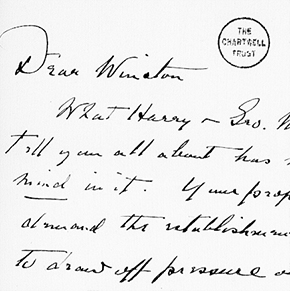 THE
CHARTWELL
TRUST
Dear Winston
What Harry & Geo. M
tell you all about has
mind in it. Your peop
demand the establishmen
to draw off pressure o